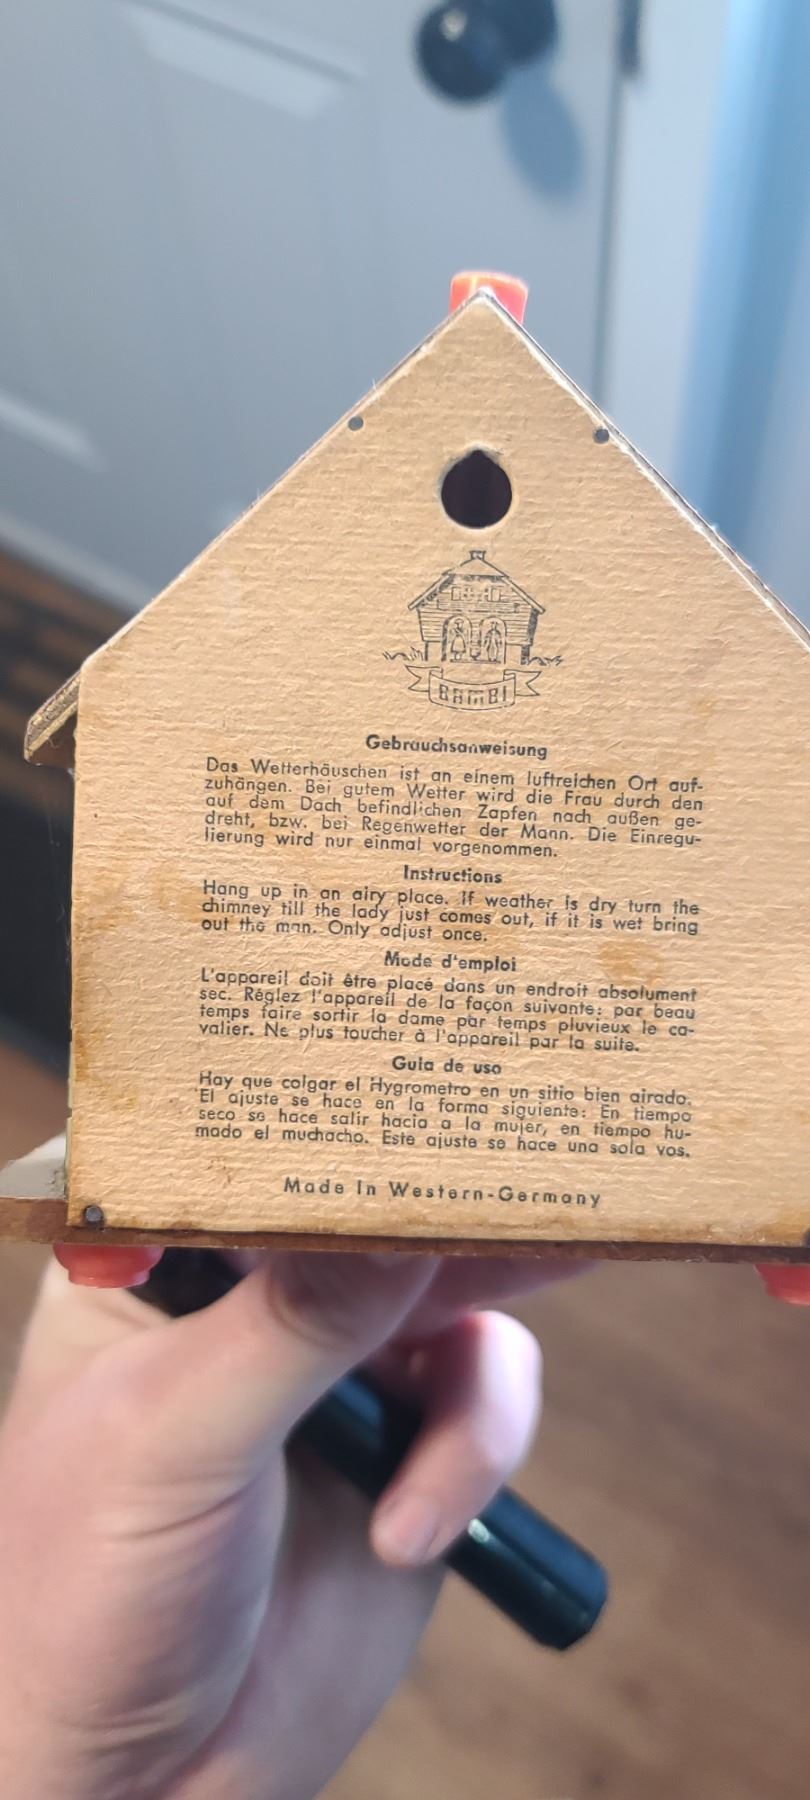 BAMBI
Gebrauchsanweisung
Das Wetterhäuschen ist an einem luftreichen Ort auf-
zuhängen. Bei gutem Wetter wird die Frau durch den
auf dem Dach befindlichen Zapfen nach außen ge-
dreht, bzw. bei Regenwetter der Mann. Die Einregu-
lierung wird nur einmal vorgenommen.
Instructions
Hang up in an airy place. If weather is dry turn the
chimney till the lady just comes out, if it is wet bring
out the man. Only adjust once.
Mode d'emploi
L'appareil doit être placé dans un endroit absolument
sec. Réglez l'appareil de la façon suivante: par beau
temps faire sortir la dame par temps pluvieux le ca-
valier. Ne plus toucher à l'appareil par la suite.
Guia de uso
Hay que colgar el Hygrometro en un sitio bien airado.
El ajuste se hace en la forma siguiente: En tiempo
seco se hace salir hacia a la mujer, en tiempo hu-
mado el muchacho. Este ajuste se hace una sola vos.
Made In Western-Germany